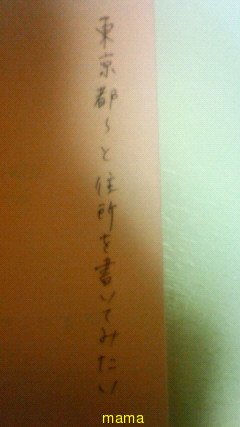 東京都〜と住所を書いてみたい
mama